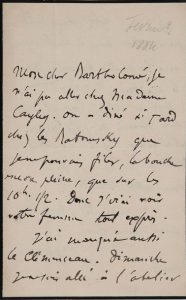 Février
1884
Mon cher Bartholomé, je
n'ai pu aller chez Madame
Cayley. On a dîné si tard
chez les que
je ne pouvais filer, la bouche
encore pleine, que sur les
10h 1/2. Donc j'irai voir
votre femme tout exprès.
J'ai manqué aussi
le Clémenceau. Dimanche
je suis allé à l'atelier